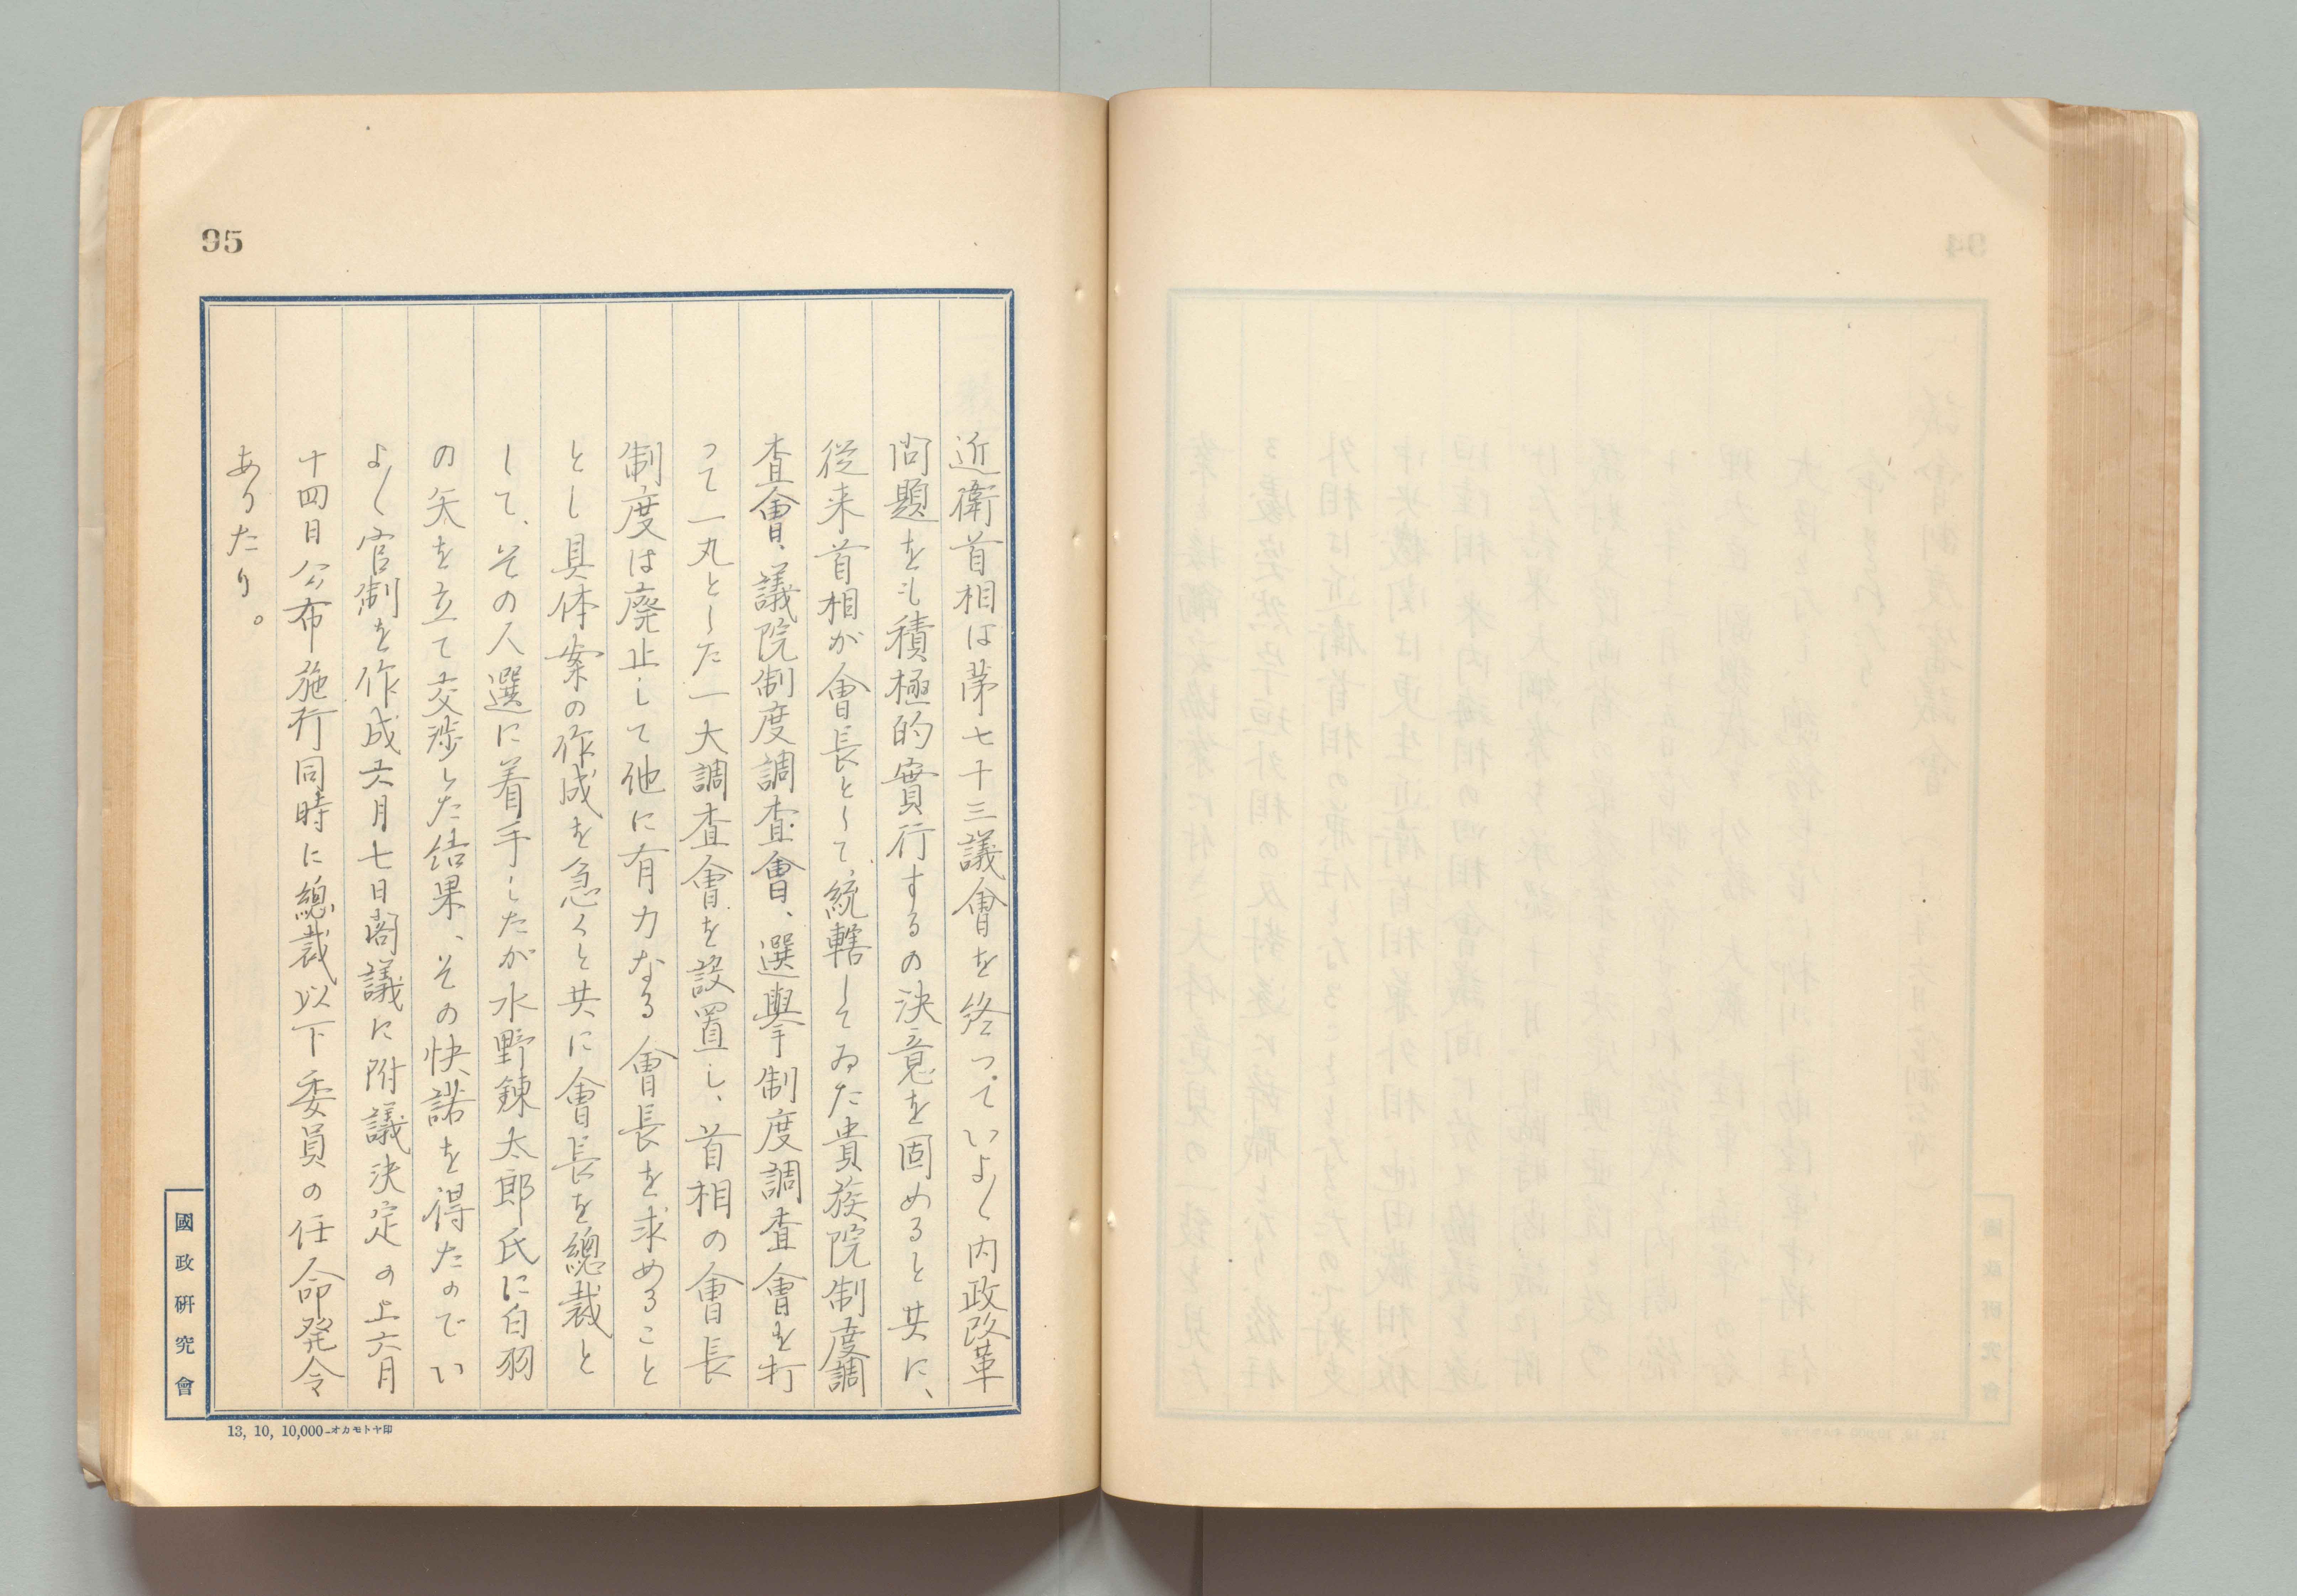 95
近衛首相は第七十三議會を終っていよ〳〵内政改革
問題をも積極的實行するの決意を固めると共に、
従来首相が會長として、統轄してゐた貴族院制度調
査會、議院制度調査會、選擧制度調査會を打
って一丸とした一大調査會を設置し、首相の會長
制度は廃止して他に有力なる會長を求めること
とし具体案の作成を急ぐと共に會長を總裁と
して、その人選に着手したが水野錬太郎氏に白羽
の矢を立て交渉した結果、その快諾を得たのでい
よ〳〵官制を作成六月七日閣議に附議決定の上六月
十四日公布施行同時に總裁以下委員の任命発令
ありたり。
國政研究會
13, 10, 10,000-オカモトヤ印